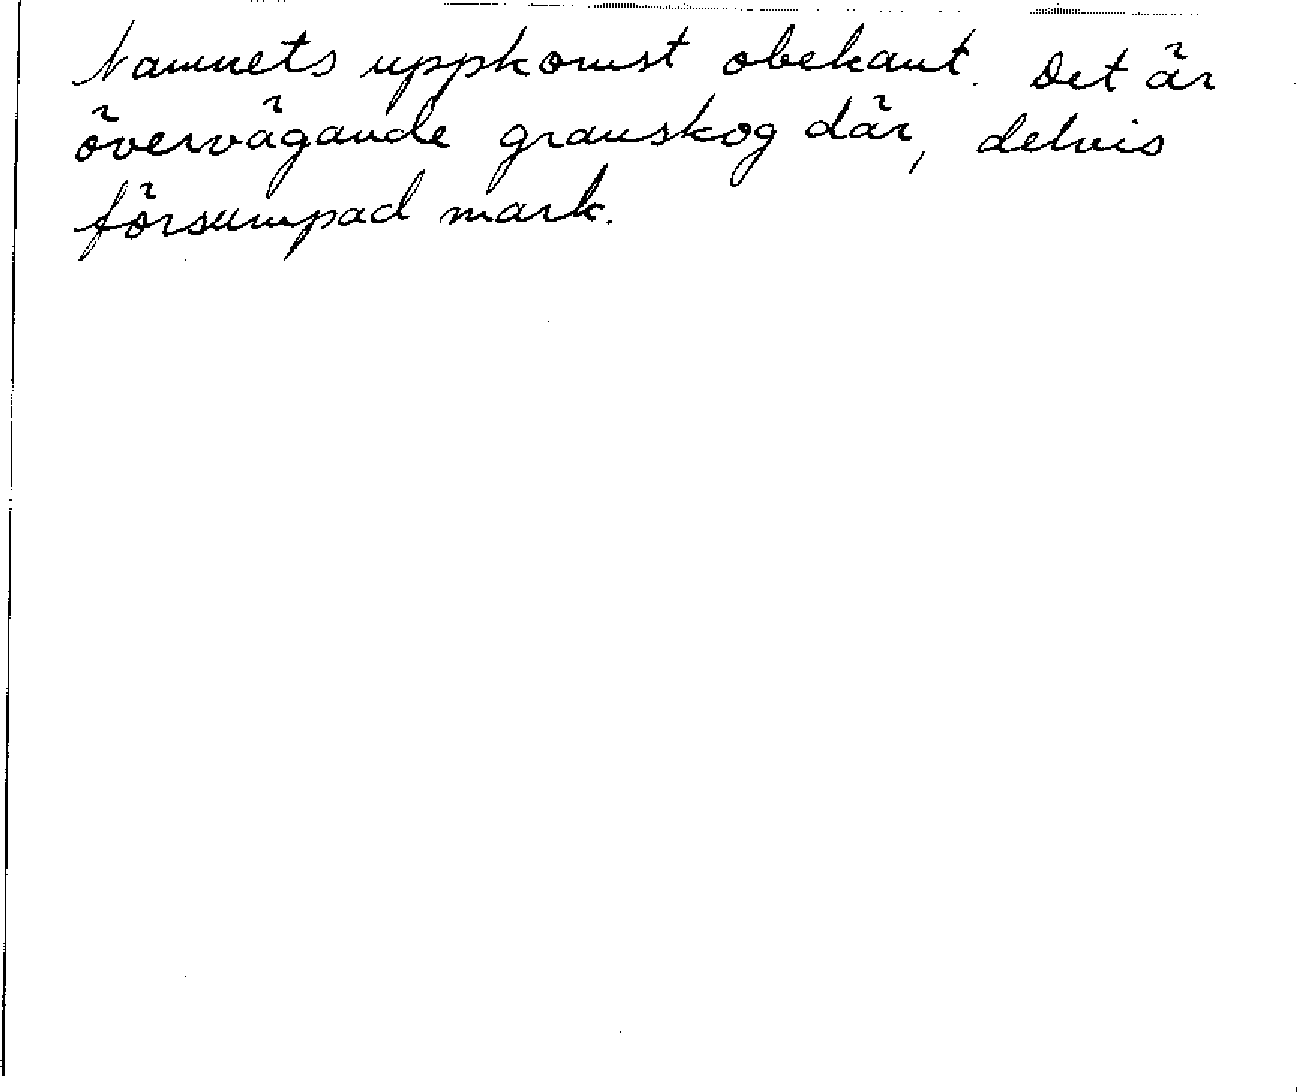 Namnets uppkomst obekant. Det är
övervägande granskog där, delvis
försumpad mark.